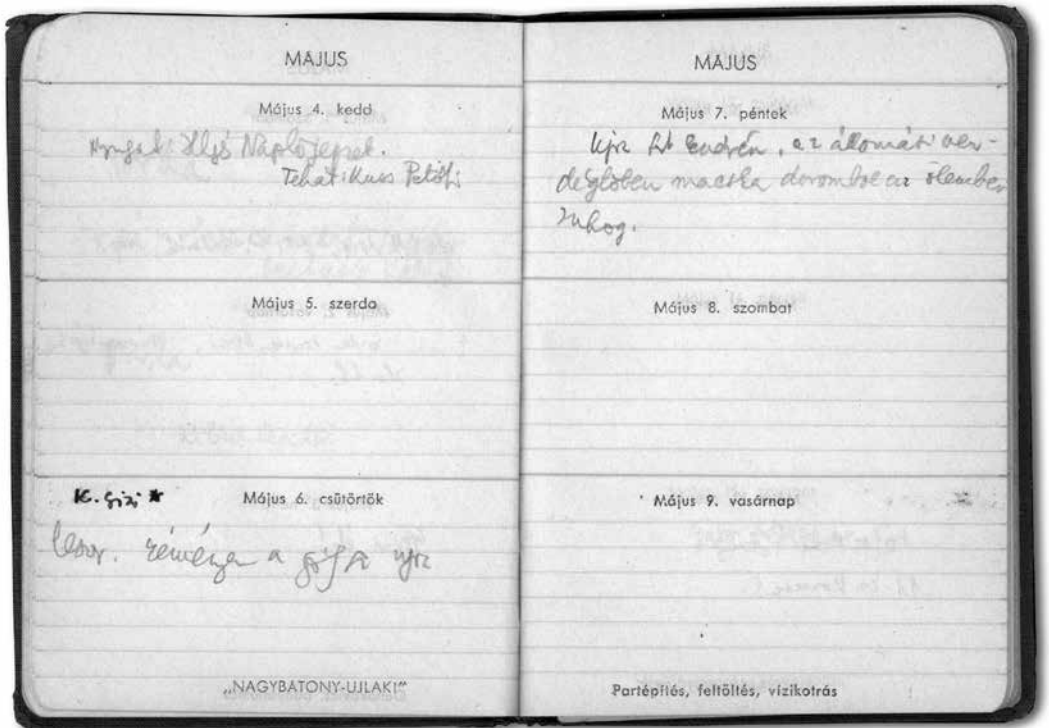 MÁJUS
Május 4. kedd
Nyugat: Illyés Naplójegyzet.
Tematikus Petőfi
Május 5. szerda
K. Gizi *
Május 6. csütörtök
a újra
„NAGYBATONY-UJLAKI"
MÁJUS
Május 7. péntek
Újra Endrén, az állomási ven-
déglőben macska dorombol az ölemben
Zuhog.
Május 8. szombat
Május 9. vasárnap
Partépítés, feltöltés, vízikotrás